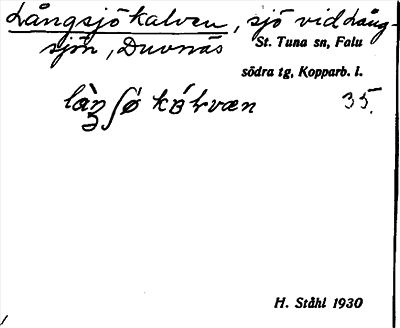 Långsjökalven, sjö vid Lång-
sjön, Duvnäs
St. Tuna sn, Falu
södra tg, Kopparb. l.
35.
H. Ståhl 1930